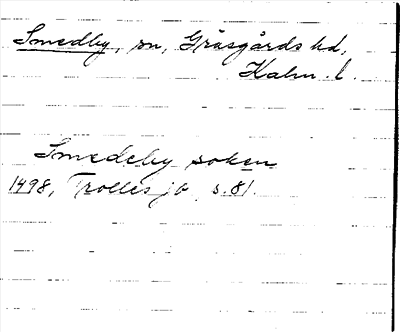 Smedby, sn, Gräsgårds hd,
Kalm. l.
Smedeby soken
1498, Trolles jb s. 81.